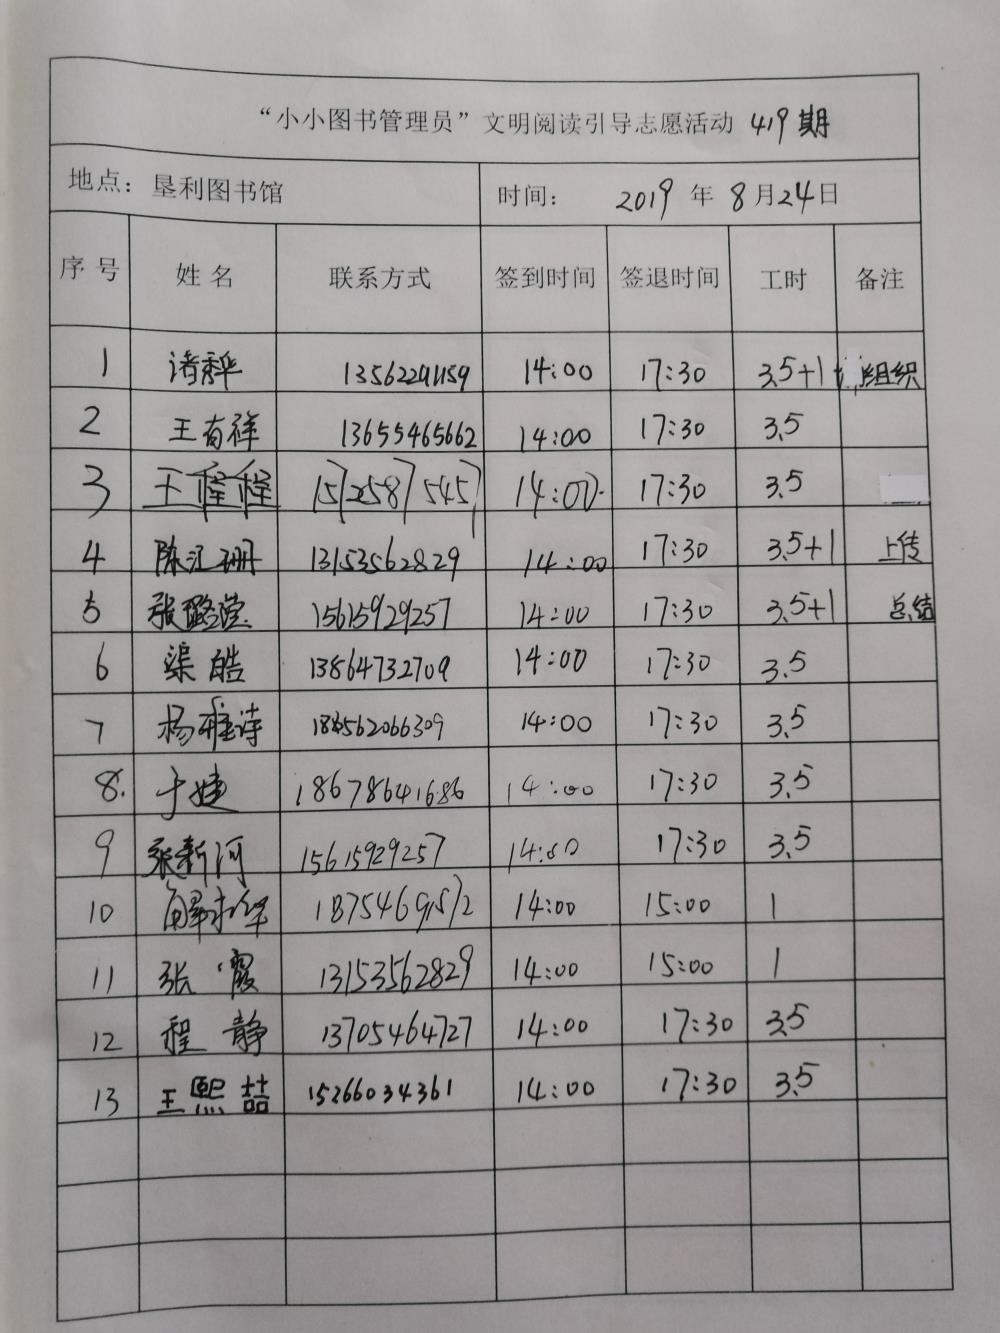 “小小图书管理员”文明阅读引导志愿活动 419期
地点：垦利图书馆 时间： 2019 年 8月24日
序号 姓名 联系方式 签到时间 签退时间 工时 备注
1 14:00 17:30 3.5+1 组织
2 王有祥 13655465662 14:00 17:30 3.5
3 王程程 14:00 17:30 3.5
4 陈江珊 13153562829 14:00 17:30 3.5+1 上传
5 张璐莹 15615929257 14:00 17:30 3.5+1 总结
6 渠皓 13864732709 14:00 17:30 3.5
7 杨雅诗 14:00 17:30 3.5
8. 于婕 18678641686 14:00 17:30 3.5
9 张新河 15615929257 14:00 17:30 3.5
10 14:00 15:00 1
11 张霞 13153562829 14:00 15:00 1
12 程静 13705464727 14:00 17:30 3.5
13 王熙喆 15266034361 14:00 17:30 3.5